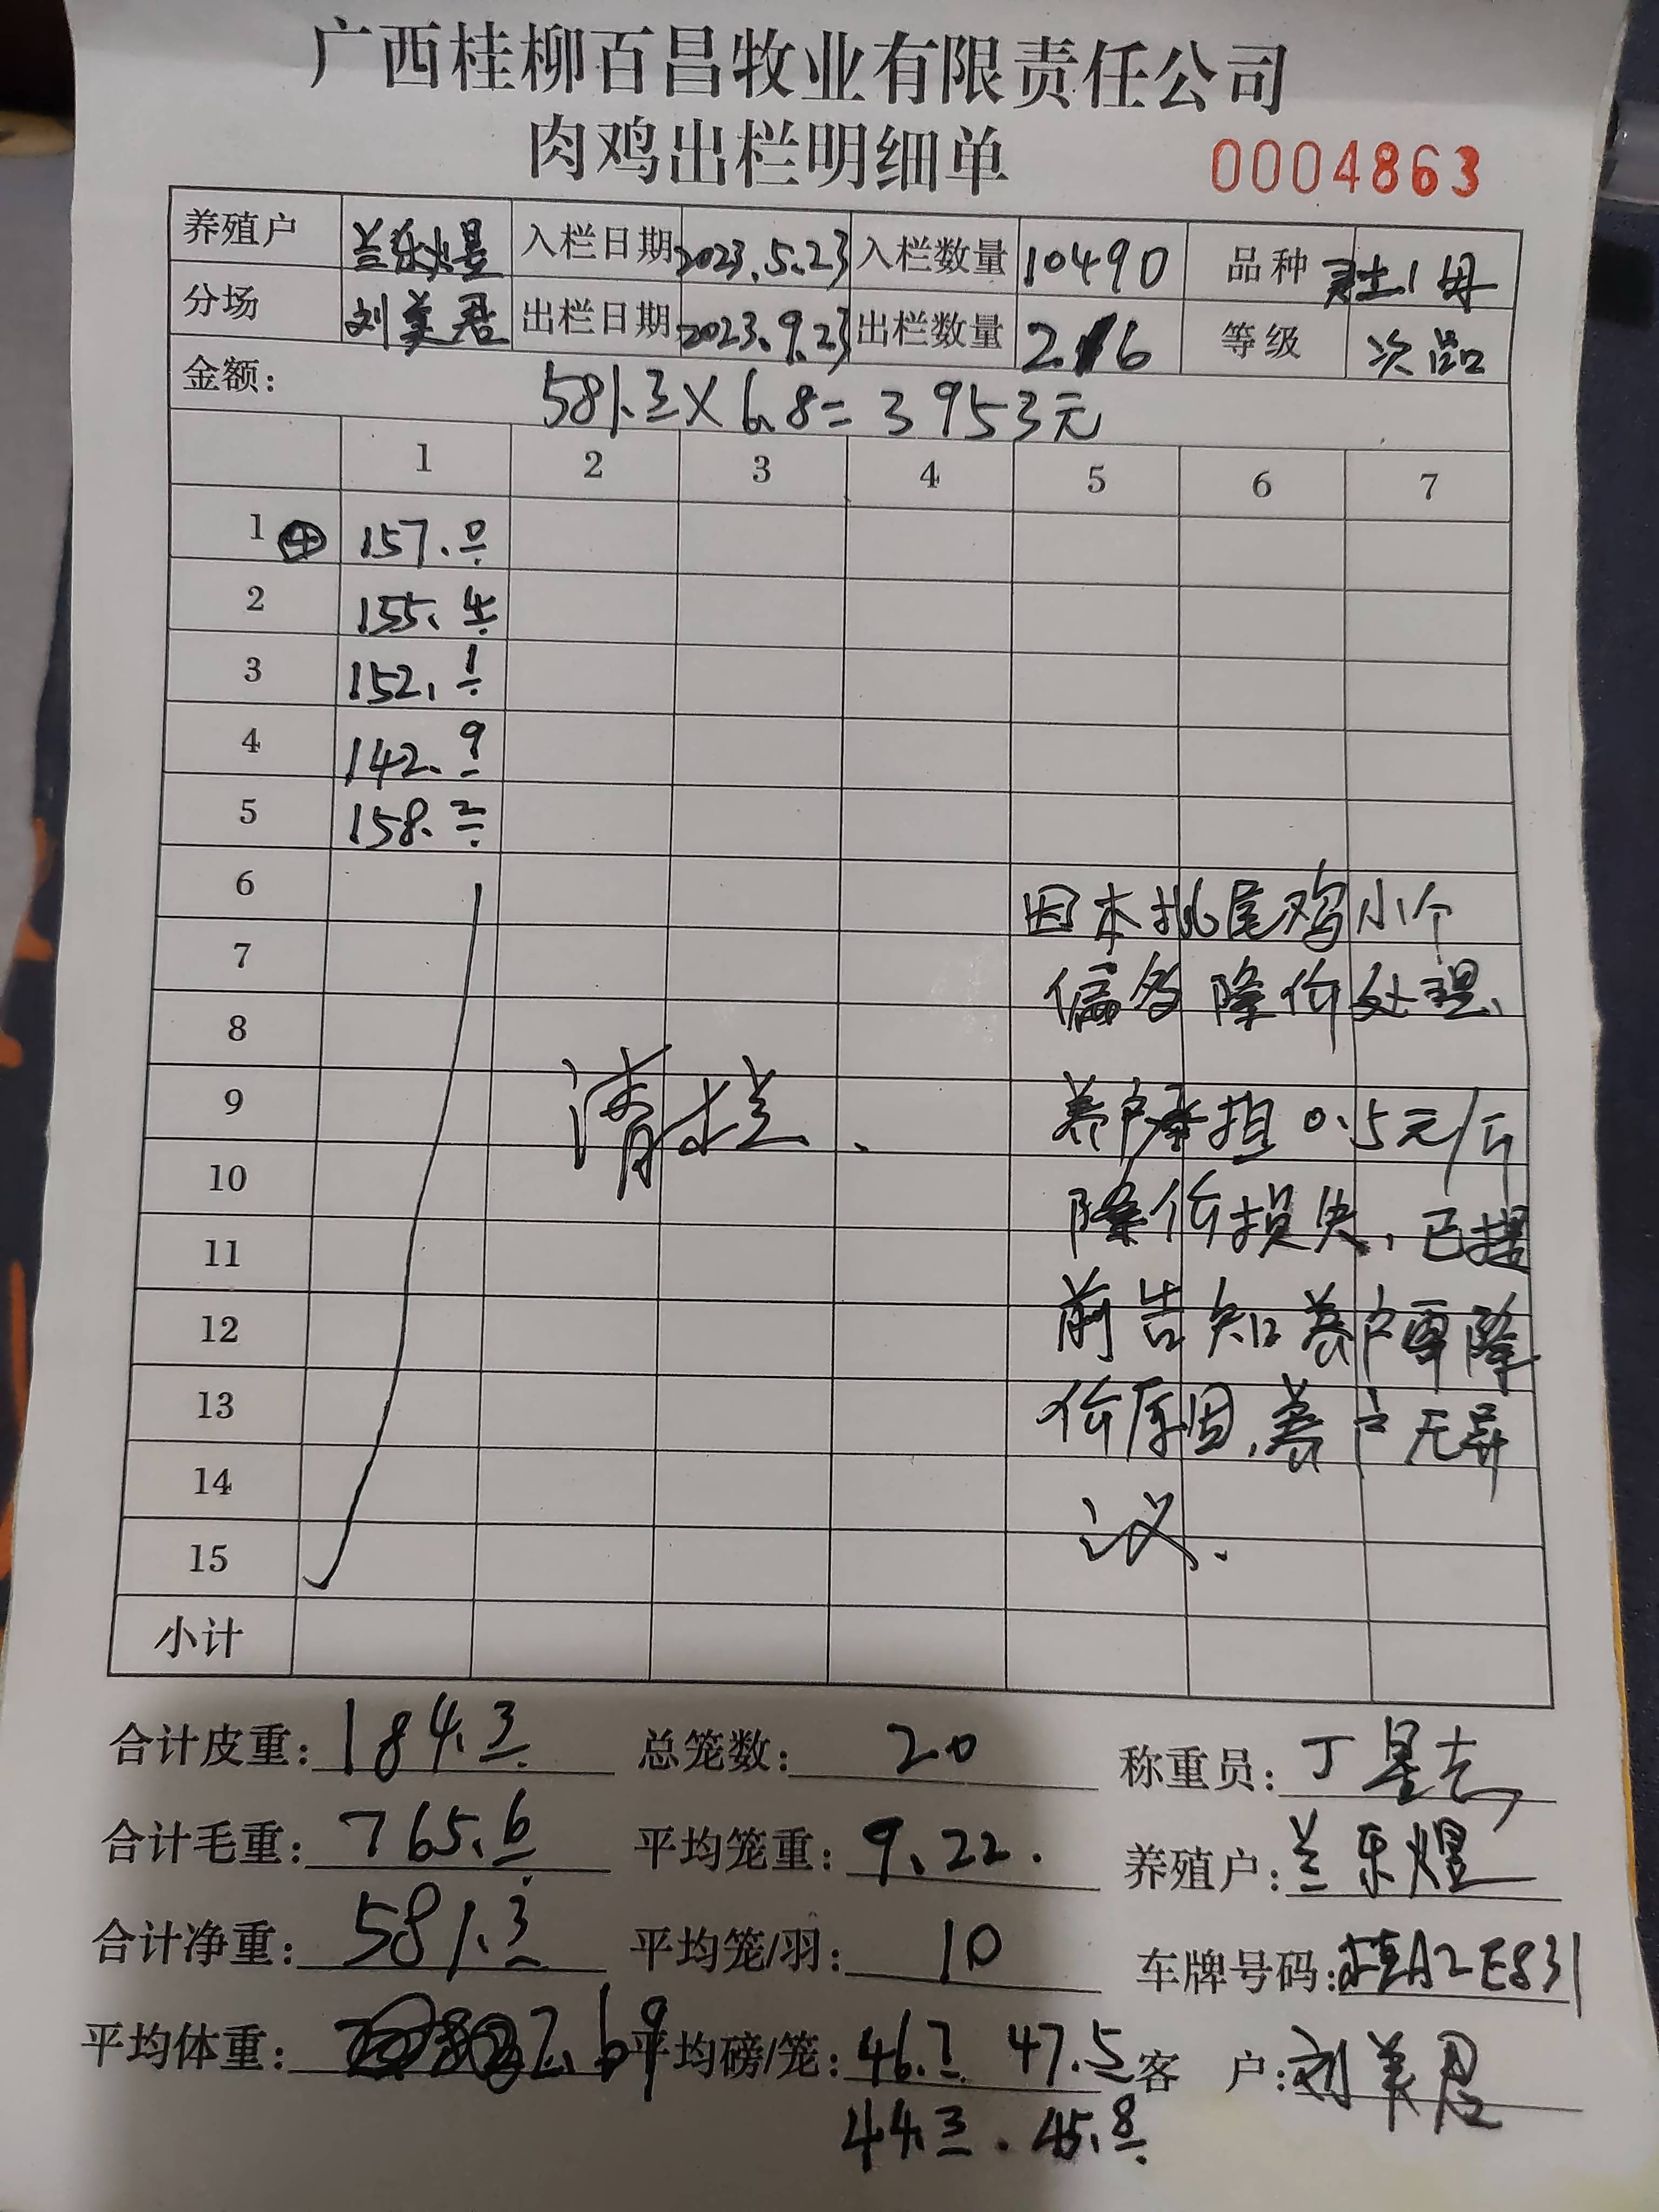 广西桂柳百昌牧业有限责任公司
肉鸡出栏明细单 0004863
养殖户 兰乐煜 入栏日期 2023.5.23 入栏数量 10490 品种 土1母
分场 刘美君 出栏日期 2023.9.23 出栏数量 216 等级 次品
金额: 581.3×6.8=3953元
1 2 3 4 5 6 7
1 ④ 157.0
2 155.4
3 152.1
4 142.9
5 158.2
6 因本批尾鸡小个
7 偏多降价处理、
8
9 清栏、 养户承担0.5元/斤
10 降价损失,已提
11
12 前告知养户再降
13 价原因,养户无异
14 议.
15
小计
合计皮重: 184.3 总笼数: 20 称重员: 丁
合计毛重: 765.6 平均笼重: 9.22. 养殖户: 兰乐煜
合计净重: 581.3 平均笼/羽: 10 车牌号码: 桂A2E831
平均体重: 2.69 平均磅/笼: 46.7 47.5 客 户: 刘美君
44.3.45.8